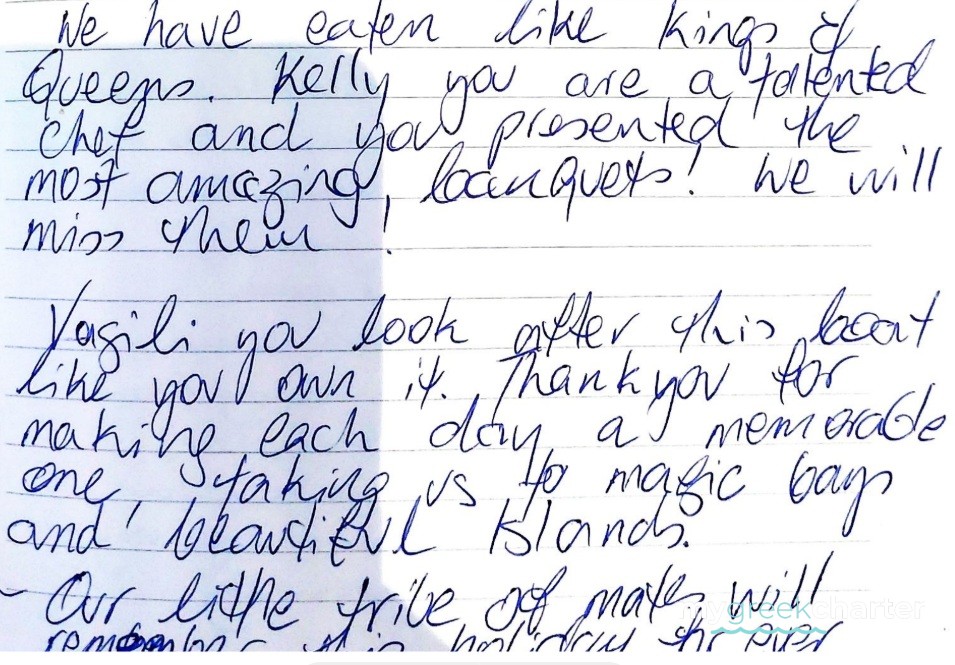 We have eaten like kings &
Queens. Kelly you are a talented
chef and you presented the
most amazing, banquets! We will
miss them!
Vasili you look after this boat
like you own it. Thank you for
making each day a memorable
one, taking us to magic bays
and beautiful Islands.
- Our little tribe of mates will
remember this holiday for ever
mygreekcharter